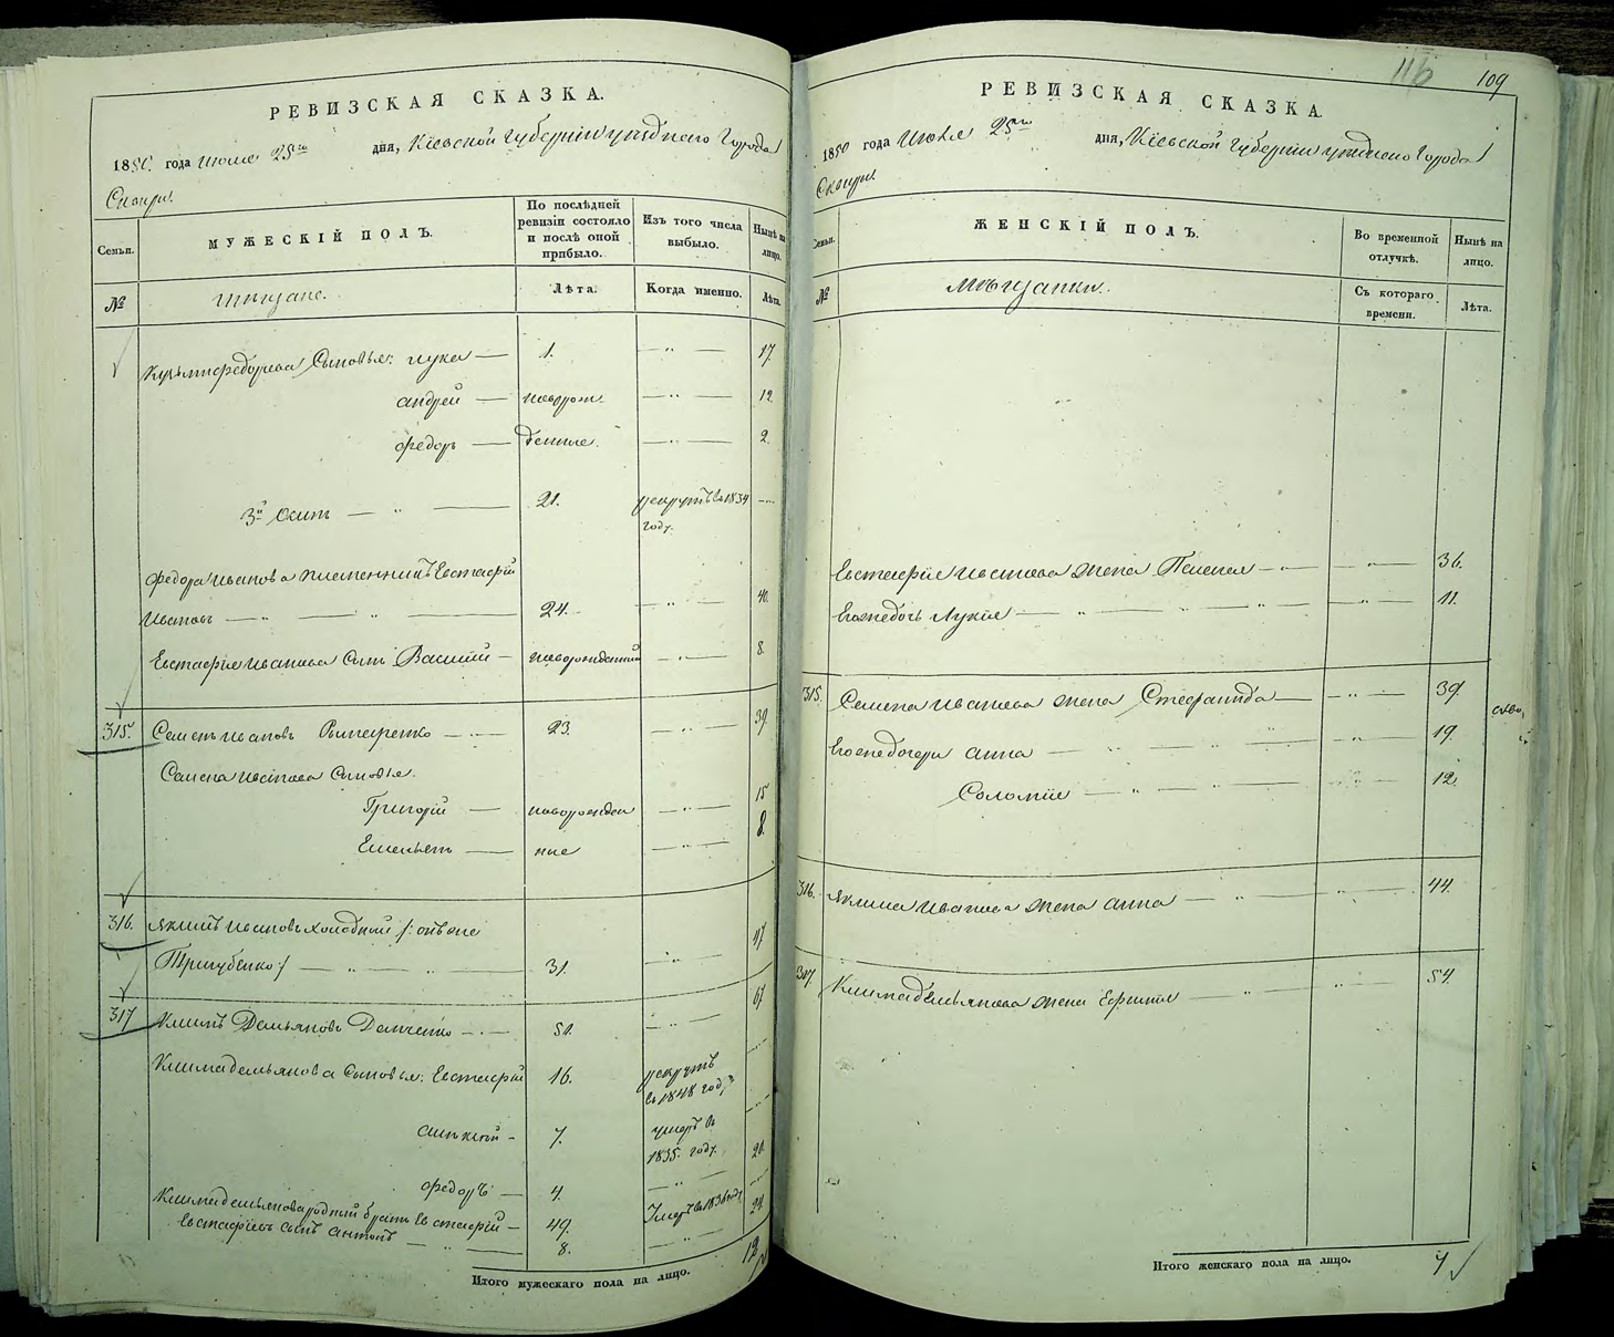 РЕВИЗСКАЯ СКАЗКА.
1850 года Июля 25го дня, Кіевской Губерніи уѣзднаго Города
Сквиры.
Семьи.
МУЖЕСКІЙ ПОЛЪ.
По послѣдней ревизіи состояло и послѣ оной прибыло.
Изъ того числа выбыло.
Нынѣ на лицо.
№
Мѣщане.
Лѣта.
Когда именно.
Лѣта.
Сыновья: Лука — 1. — " — 17.
андрей — новорож — " — 12.
федоръ — денные. — " — 2.
3й — " — 21. рекрутъ въ 1834 году. —
федора Иванова племенникъ Евстафій
Ивановъ — " — " — 24. — " — 40.
Евстафія Иванова сынъ Василий — новорожденный — " — 8.
315. Семенъ Ивановъ — 23. — " — 39.
Семена Иванова Сыновья.
Григорій — новорожден — " — 15
Емельянъ — ные — " — 8.
316. Якимъ Ивановъ холодный /: онъ же
Тригубенко :/ — " — " — 31. — " — 47
317 Климъ Демьяновъ Демченко — " — 51. — " — 67
Клима демьянова Сыновья: Евстафій 16. рекрутъ въ 1848 году —
алексѣй — 7. умеръ въ 1835. году. —
федоръ — 4. — " — 20.
Клима демьянова родный братъ Евстафій — 49. Умеръ въ 1836 году —
Евстафіевъ сынъ антонъ — " — 8. — " — 24
Итого мужескаго пола на лицо. 12
116 109
РЕВИЗСКАЯ СКАЗКА.
1850 года Июля 25го дня, Кіевской Губерніи уѣзднаго Города
Сквиры.
Семьи.
ЖЕНСКІЙ ПОЛЪ.
Во временной отлучкѣ.
Нынѣ на лицо.
№
Мѣщанки.
Съ котораго времени.
Лѣта.
Евстафія Иванова жена Пелагея — " — 36.
Его же дочь Лукія — " — " — " — 11.
315. Семена Иванова жена Стефанида — " — 39.
Его же дочери анна — " — " — " — 19.
Соломія — " — " — " — 12.
316. Якима Иванова жена анна — " — " — 44.
317. Клима демьянова жена Ефимія — " — " — 54.
Итого женскаго пола на лицо. 7